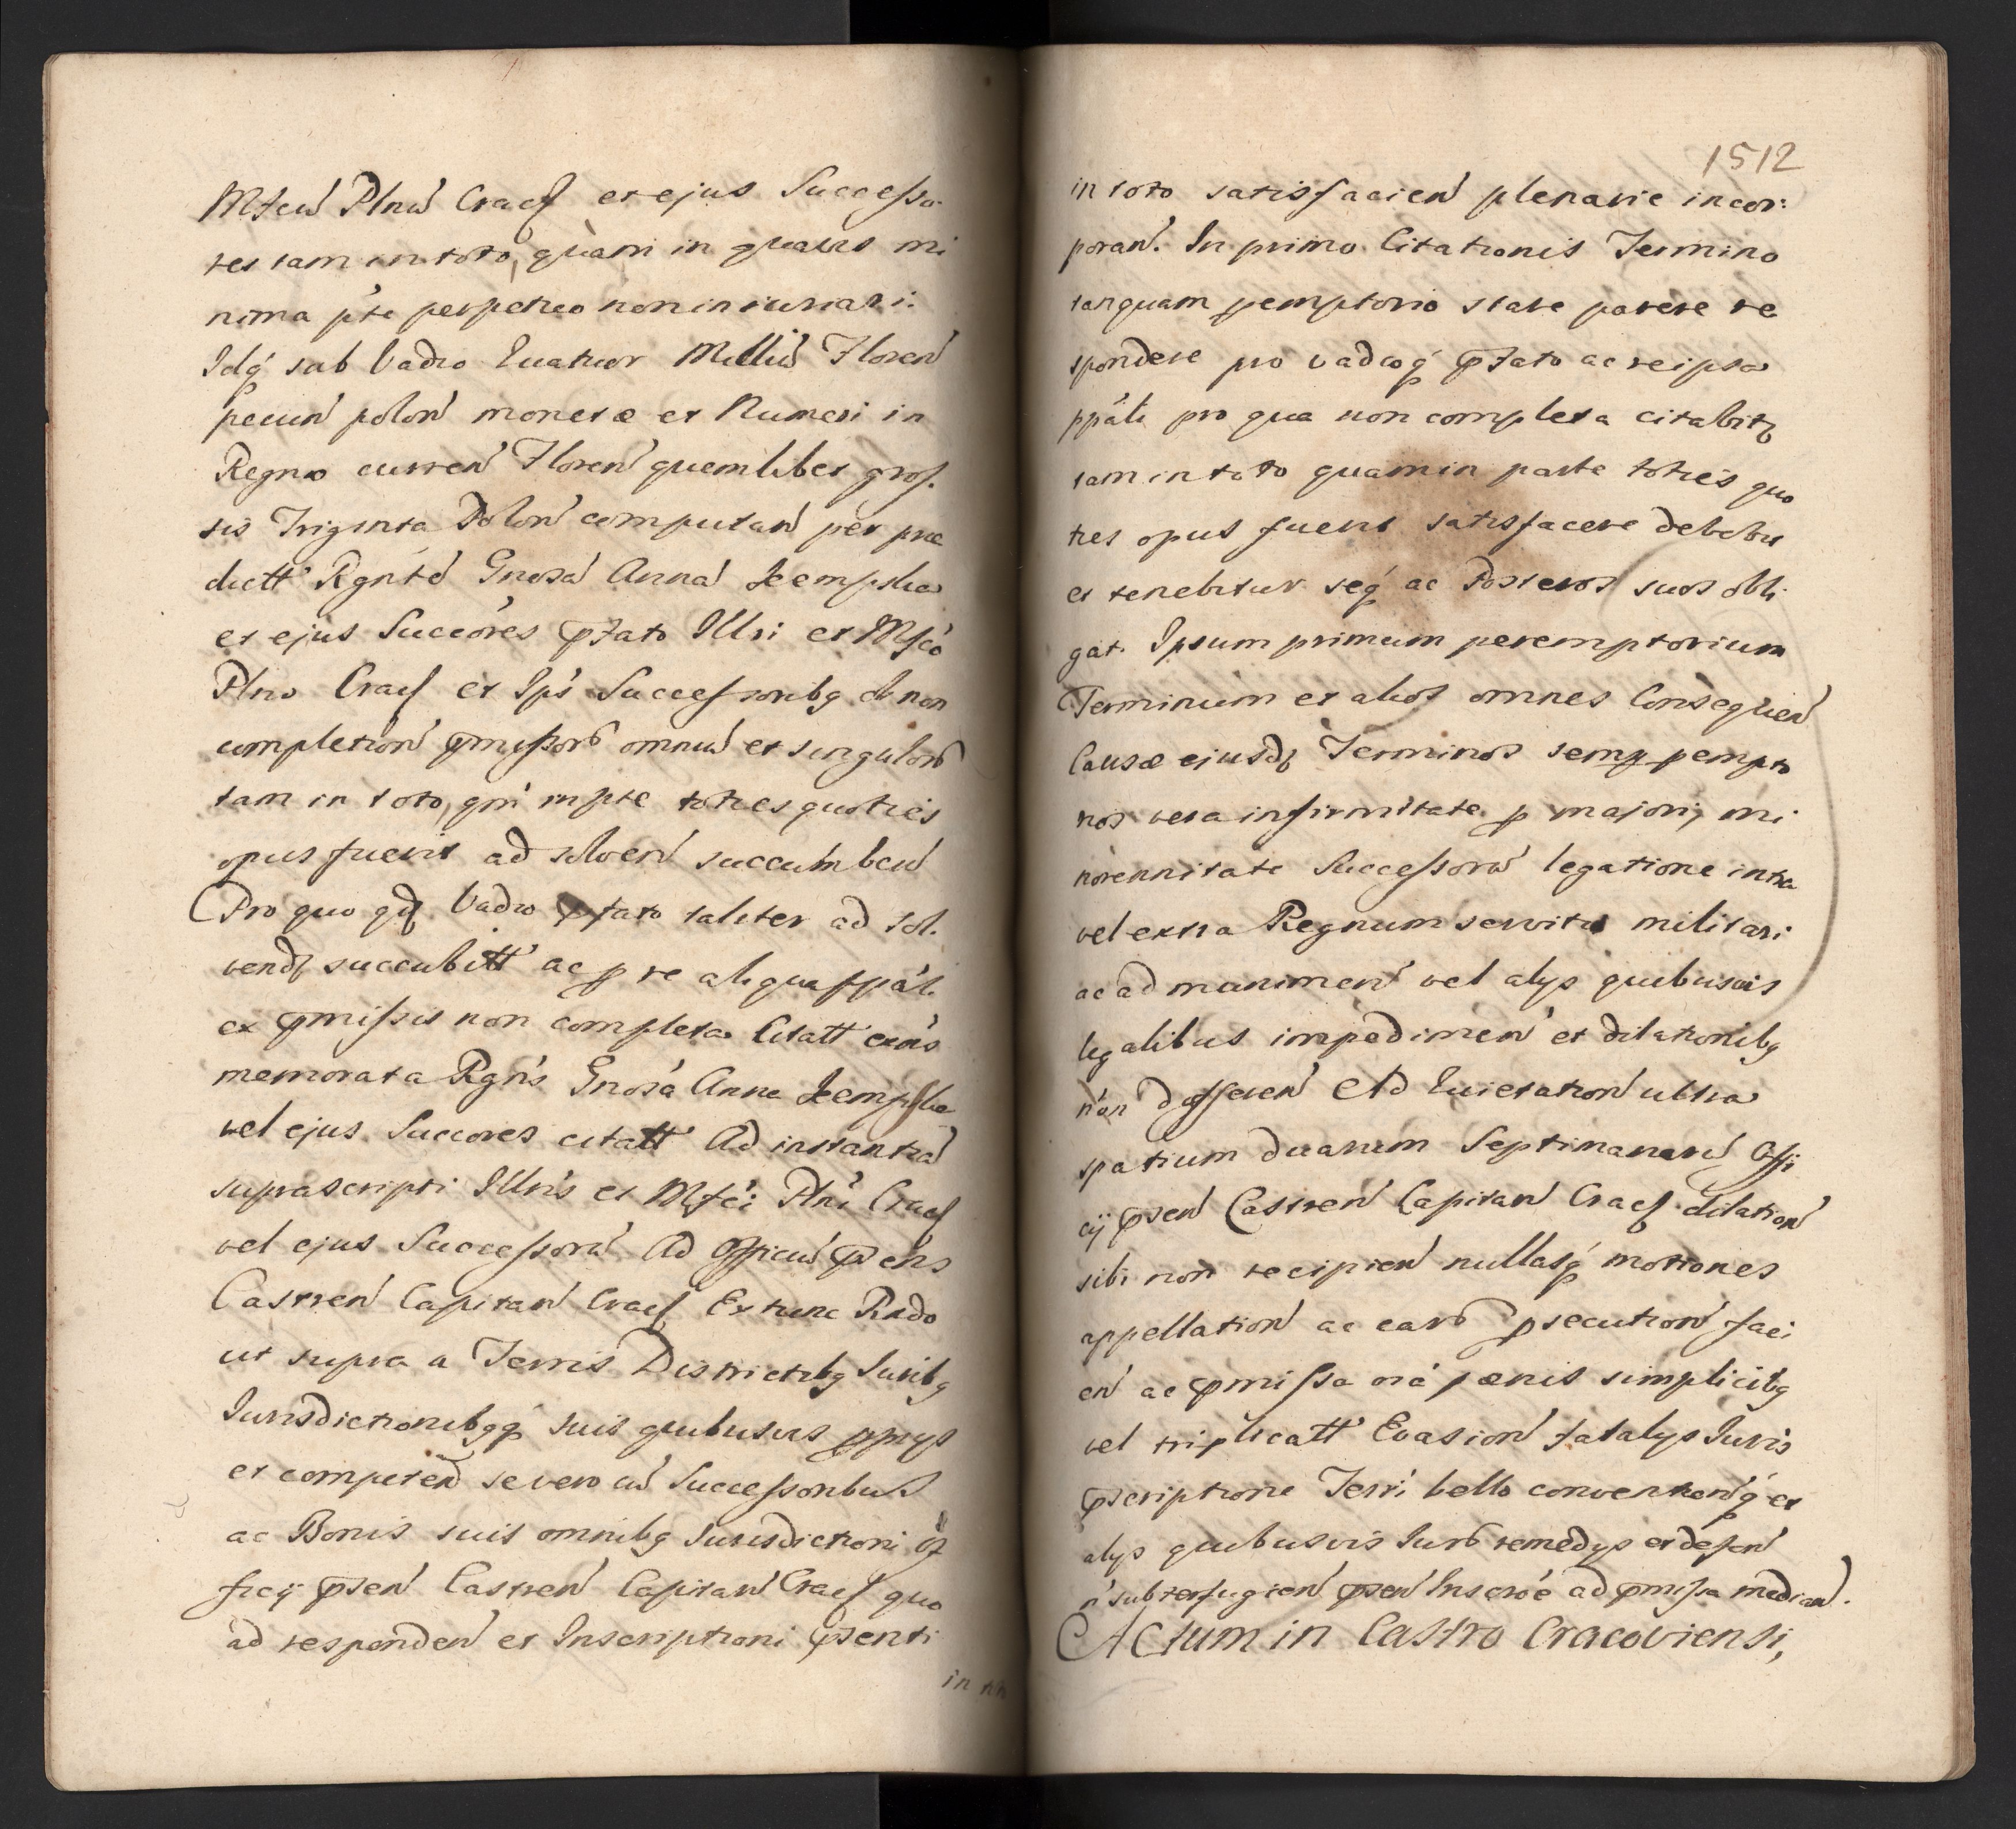 Mfcū Plnū Cracſ et ejus Succeſso-
res tam in toto, quàm in quavis mi
nima p̄te perpetuo non iniuriari.
Idq́ sub Vadio Quatuor Milliū Floreń
pecuń poloń monetæ et Numeri in
Regno curreń Floreń quemlibet groſ-
sis Triginta Poloń computań per præ
dictt Rgntē Gnosā Annā Kempska
et ejus Succōres p̄fato Illri et Mfcó
Plno Cracſ et Ips Succeſsoribꝫ ob non
completioń p̄miſsorō omniū et singulorō
tam in toto, qm̄ in p̄te toties quoties
opus fuerit ad solveń succumbeń
Pro quo qd Vadio p̄fato taliter ad sol-
vend succubitt ac p re aliqua ppáli
ex p̄miſsis non completa Citatt exñs
memorata Rgñs Gnosa Anna Kempska
vel ejus Succores citatt Ad instantiā
suprascripti Illris et Mfci Plni Cracſ
vel ejus Succeſsorū Ad Officiū p̄sens
Castreń Capitań Cracſ Ex tunc Rndo
ut supra a Terris Districtibꝫ Iuribꝫ
Iurisdictionibꝫq́ suis quibusvis pprijs
et competeń se vero cū Succeſsoribus
ac Bonis suis omnibꝫ Iurisdictioni Of
ficij p̄seń Castreń Capitań Cracſ quo
ad respondeń et Inscriptioni p̄senti
in
1512
in toto satisfacień plenarie incor-
porań. In primo Citationis Termino
tanquam pemptorio stare parere re
spondere pro vadioq́ p̄fato ac re ipsa
ppáli pro qua non completa citabitꝛ
tam in toto quam in parte toties quo
ties opus fuerit satisfacere debebit
et tenebitur seq́ ac Posteros suos obli
gat. Ipsum primum peremptorium
Terminum et alios omnes Consequeń
Causæ ejusdꝫ Terminos semp pempto
rios vera infirmitate p majori, mi
norennitate Succeſsorū legatione intra
vel extra Regnum servitio militari
ac ad munimeń vel alijs quibusvis
legalibus impedimeń et dilationibꝫ
non dſſereń Ad Quietatioń ultra
spatium duarum Septimanarū Offi
cij p̄seń Castreń Capitań Cracſ dilatioń
sibi non recipień nullasq́ motiones
appellatioń ac earō psecutioń faci
eń ac p̄miſsa oía pænis simplicibꝫ
vel triplicatt Evasioń fatalijs Iuris
p̄scriptione Terri bello conventioń q́ et
alijs quibusvis Iurō remedijs et defeń
ń subterfugień p̄seń Inscrōē ad p̄miſsa mediań.
Actum in Castro Cracoviensi,